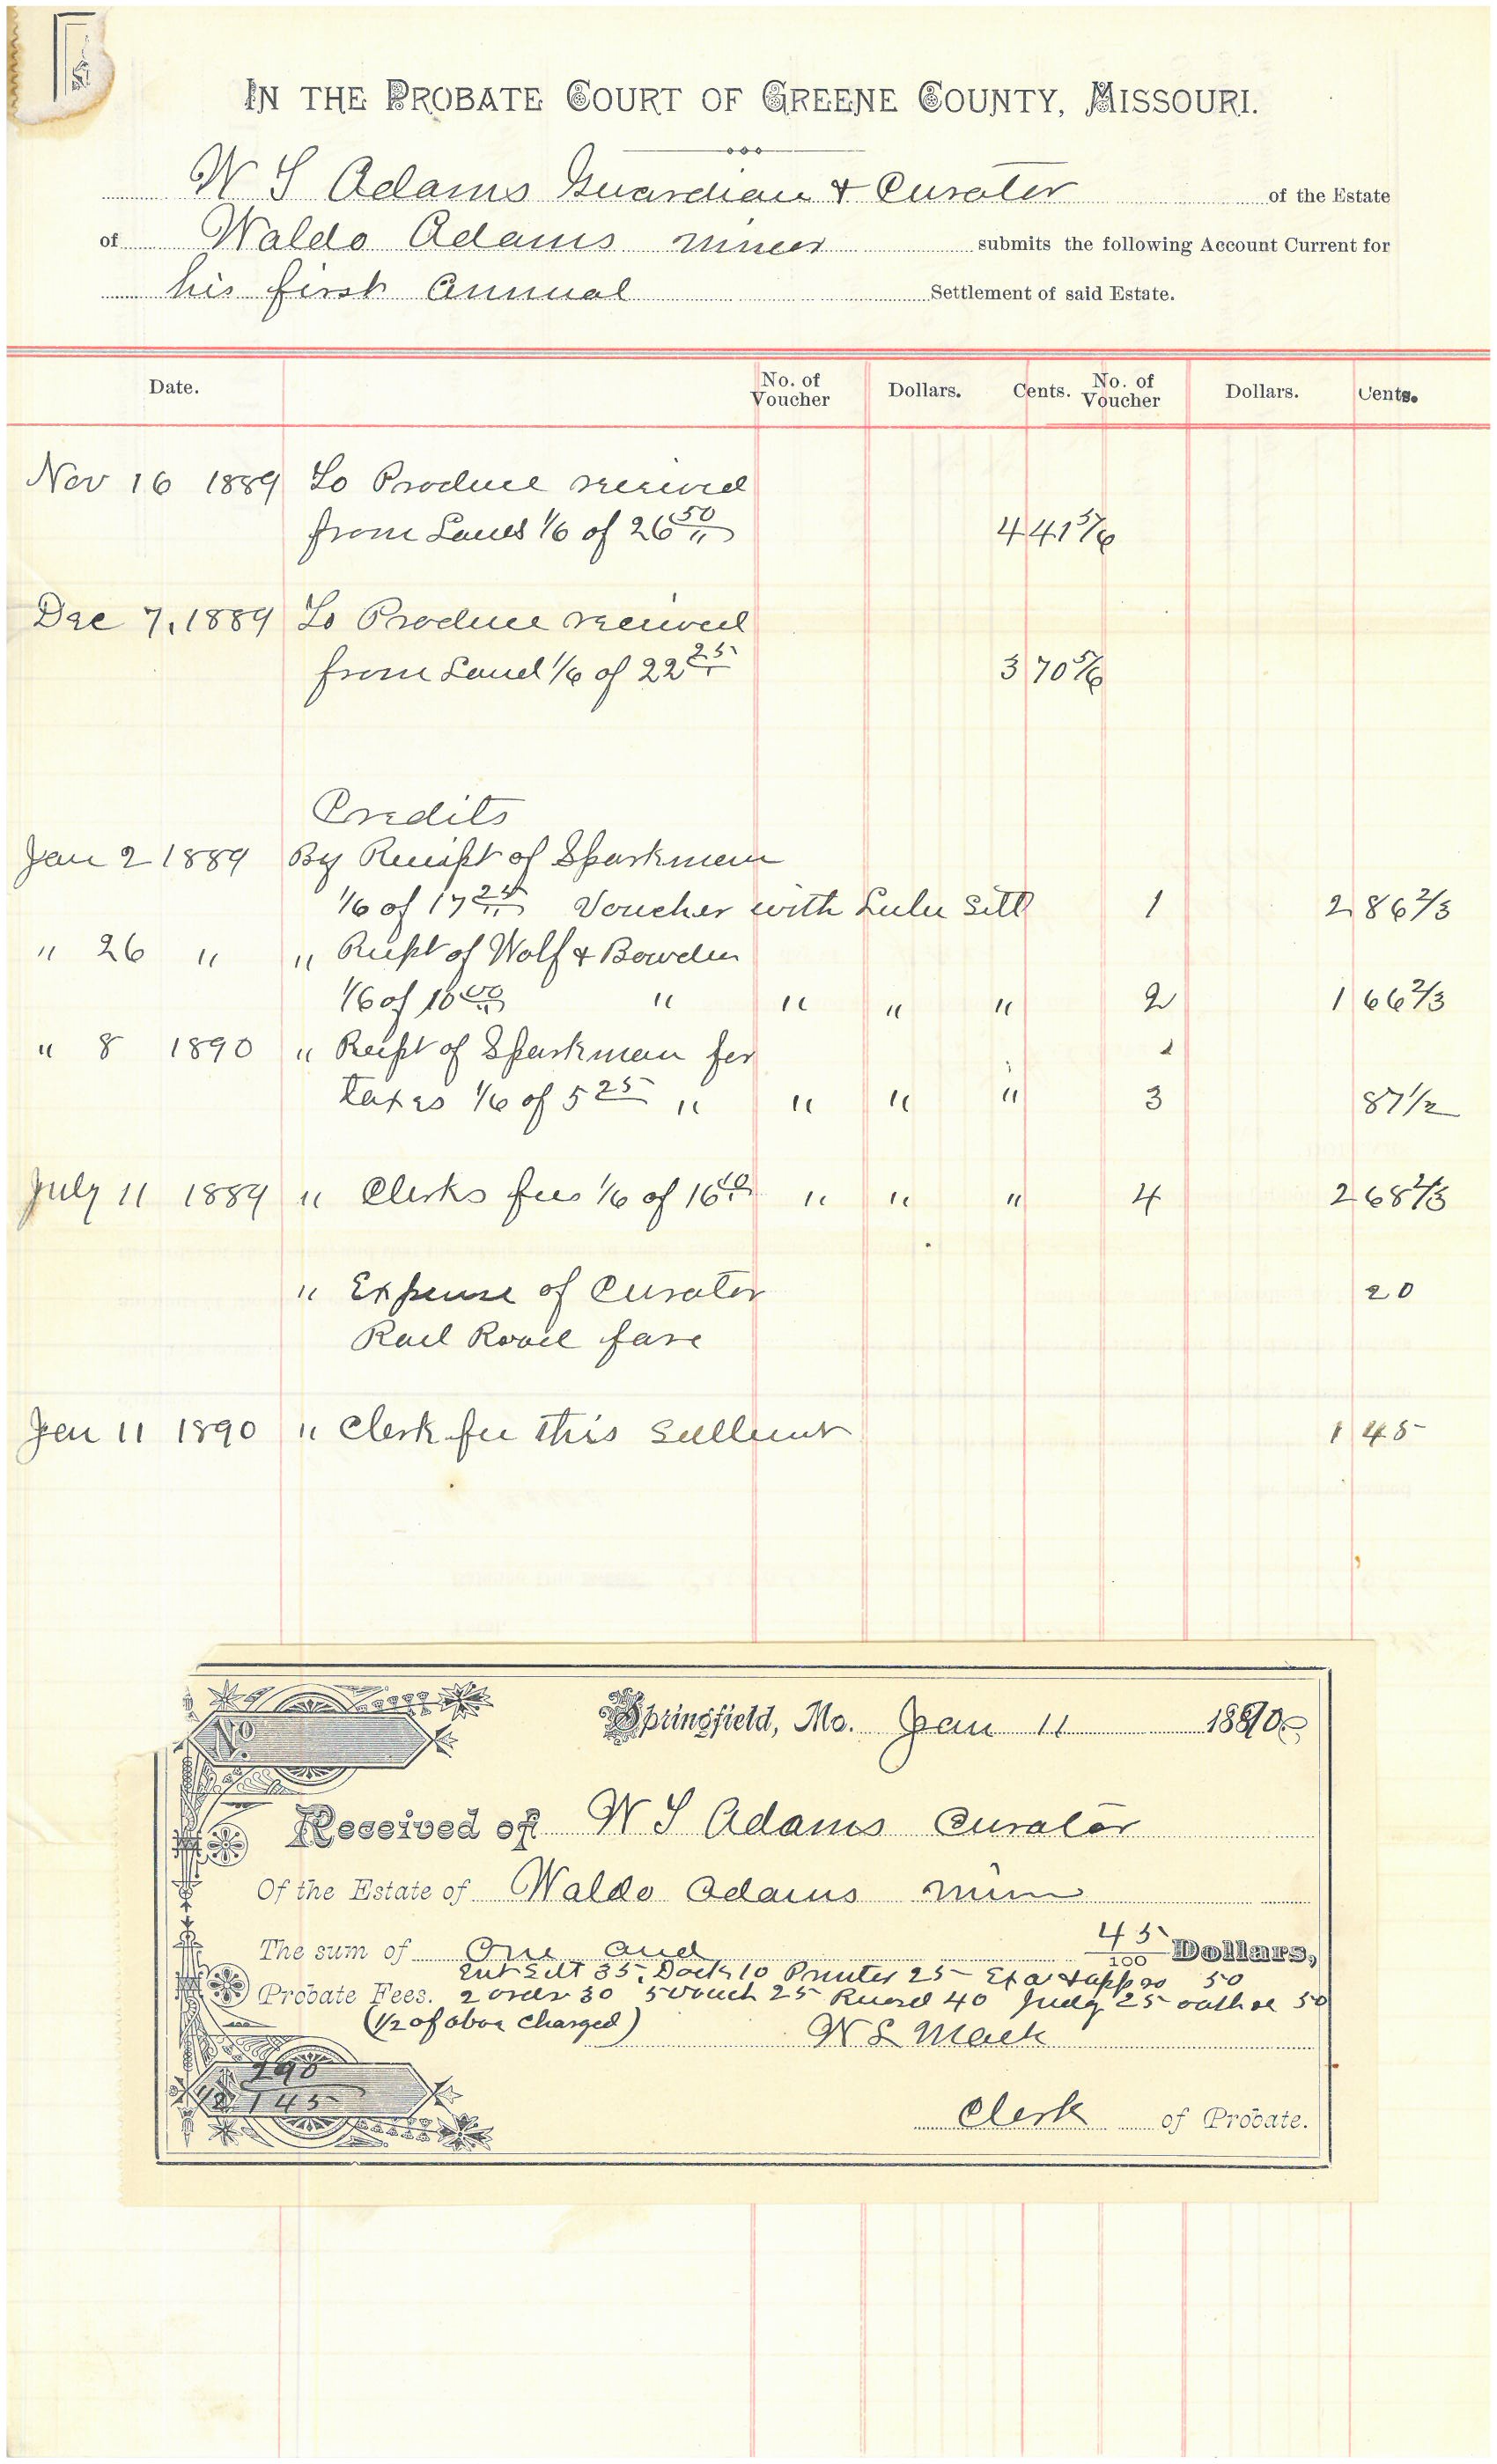 IN THE PROBATE COURT OF GREENE COUNTY, MISSOURI.
W S Adams Guardian & Curator of the Estate
of Waldo Adams minor submits the following Account Current for
his first Annual Settlement of said Estate.
Date. No. of Voucher Dollars. Cents. No. of Voucher Dollars. Cents.
Nov 16 1889 To Produce received
from Land 1/6 of 26 50 4 41 5/6
Dec 7, 1889 To Produce received
from Land 1/6 of 22 25 3 70 5/6
Credits
Jan 2 1889 By Receipt of Sparkman
1/6 of 17 25 Voucher with Lulu Sett 1 2 86 2/3
" 26 " " Recipt of Wolf & Bowden
1/6 of 10 00 " " " " 2 1 66 2/3
" 8 1890 " Recipt of Sparkman for
taxes 1/6 of 5 25 " " " " 3 87 1/2
July 11 1889 " Clerks fees 1/6 of 16 10 " " " 4 2 68 2/3
" Expense of Curator 20
Rail Road fare
Jan 11 1890 " Clerk fee this Settlemt 1 45
No
Springfield, Mo. Jan 11 1890
Received of W S Adams Curator
Of the Estate of Waldo Adams min
The sum of One and 45/100 Dollars,
Ent Sett 35, Dock 10 Printer 25 Ex a & app 50
Probate Fees. 2 order 30 5 vouch 25 Record 40 Judg 25 oath 50
(1/2 of above charged) W L Mack
290
1/2 145
Clerk of Probate.